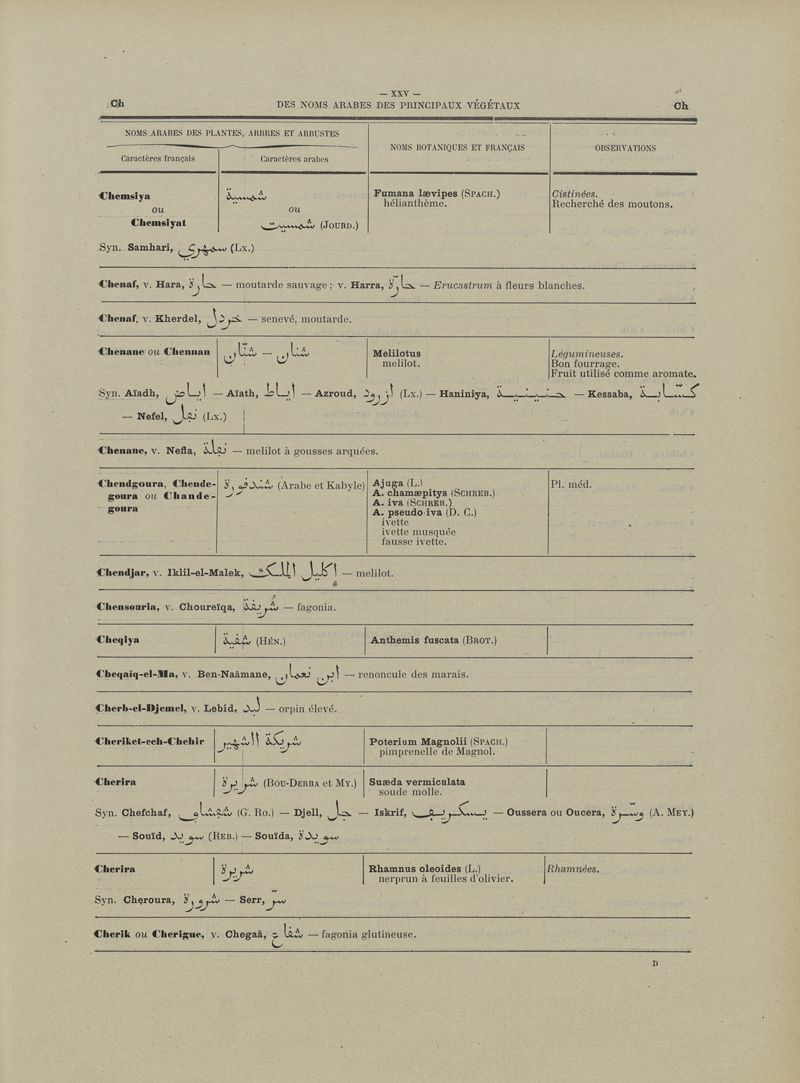 — XXV —
Ch DES NOMS ARABES DES PRINCIPAUX VÉGÉTAUX Ch
NOMS ARABES DES PLANTES, ARBRES ET ARBUSTES
NOMS BOTANIQUES ET FRANÇAIS
OBSERVATIONS
Caractères français
Caractères arabes
Chemsiya شمسية Fumana lævipes (SPACH.) Cistinées.
ou ou hélianthème. Recherché des moutons.
Chemsiyat شمسيت (JOURD.)
Syn. Samhari, سمهري (LX.)
Chenaf, v. Hara, حارة — moutarde sauvage ; v. Harra, حارة — Erucastrum à fleurs blanches.
Chenaf, v. Kherdel, خردل — senevé, moutarde.
Chenane ou Chennan شنان — شنان Melilotus Légumineuses.
melilot. Bon fourrage.
Fruit utilisé comme aromate.
Syn. Aïadh, اياض — Aïath, اياط — Azroud, ازرود (LX.) — Haniniya, حنينية — Kessaba, كسابة
— Nefel, نفل (LX.)
Chenane, v. Nefla, نفلة — melilot à gousses arquées.
Chendgoura, Chende- شندڤورة (Arabe et Kabyle) Ajuga (L.) Pl. méd.
goura ou Chande- A. chamæpitys (SCHREB.)
goura A. iva (SCHREB.)
A. pseudo-iva (D. C.)
ivette
ivette musquée
fausse ivette.
Chendjar, v. Iklil-el-Malek, اكليل الملك — melilot.
Chensouria, v. Choureïqa, شريقة — fagonia.
Cheqiya شقية (HÉN.) Anthemis fuscata (BROT.)
Cheqaïq-el-Ma, v. Ben-Naâmane, ابن نعمان — renoncule des marais.
Cherb-el-Djemel, v. Lebid, لبد — orpin élevé.
Cheriket-ech-Chehir Poterium Magnolii (SPACH.)
pimprenelle de Magnol.
Cherira شريرة (BOU-DERBA et MY.) Suæda vermiculata
soude molle.
Syn. Chefchaf, شفشاف (G. RO.) — Djell, جل — Iskrif, — Oussera ou Oucera, وسرة (A. MEY.)
— Souïd, سويد (REB.) — Souïda, سويدة
Cherira شريرة Rhamnus oleoides (L.) Rhamnées.
nerprun à feuilles d'olivier.
Syn. Cheroura, شرورة — Serr, سر
Cherik ou Cherigue, v. Chegaâ, شقاع — fagonia glutineuse.
D